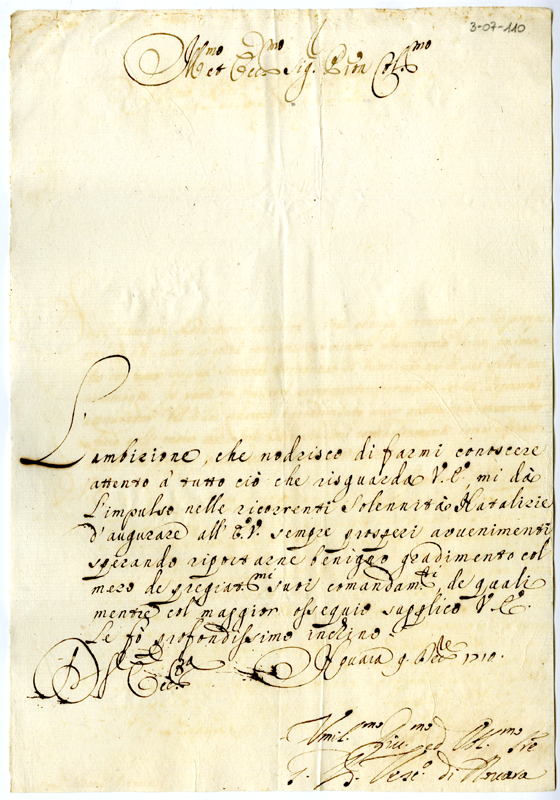 3-07-110
Ill.mo et Ecc.mo Sig.r P.ron Col.mo
L'ambizione, che nodrisco di farmi conoscere
attento à tutto ciò che risguarda V.E. mi dà
l'impulso nelle ricorrenti Solennità Natalizie
d'augurare all'E.V. sempre prosperi avvenimenti
sperando riportarne benigno gradimento col
mezo de pregiat.mi suoi comandam.ti de quali
mentre col maggior ossequio supplico V.E.
Le fò profondissimo inchino.
Di V. Ecc.za Novara 9. Dec.e 1710.
Umil.mo ed Obl.mo
di Novara